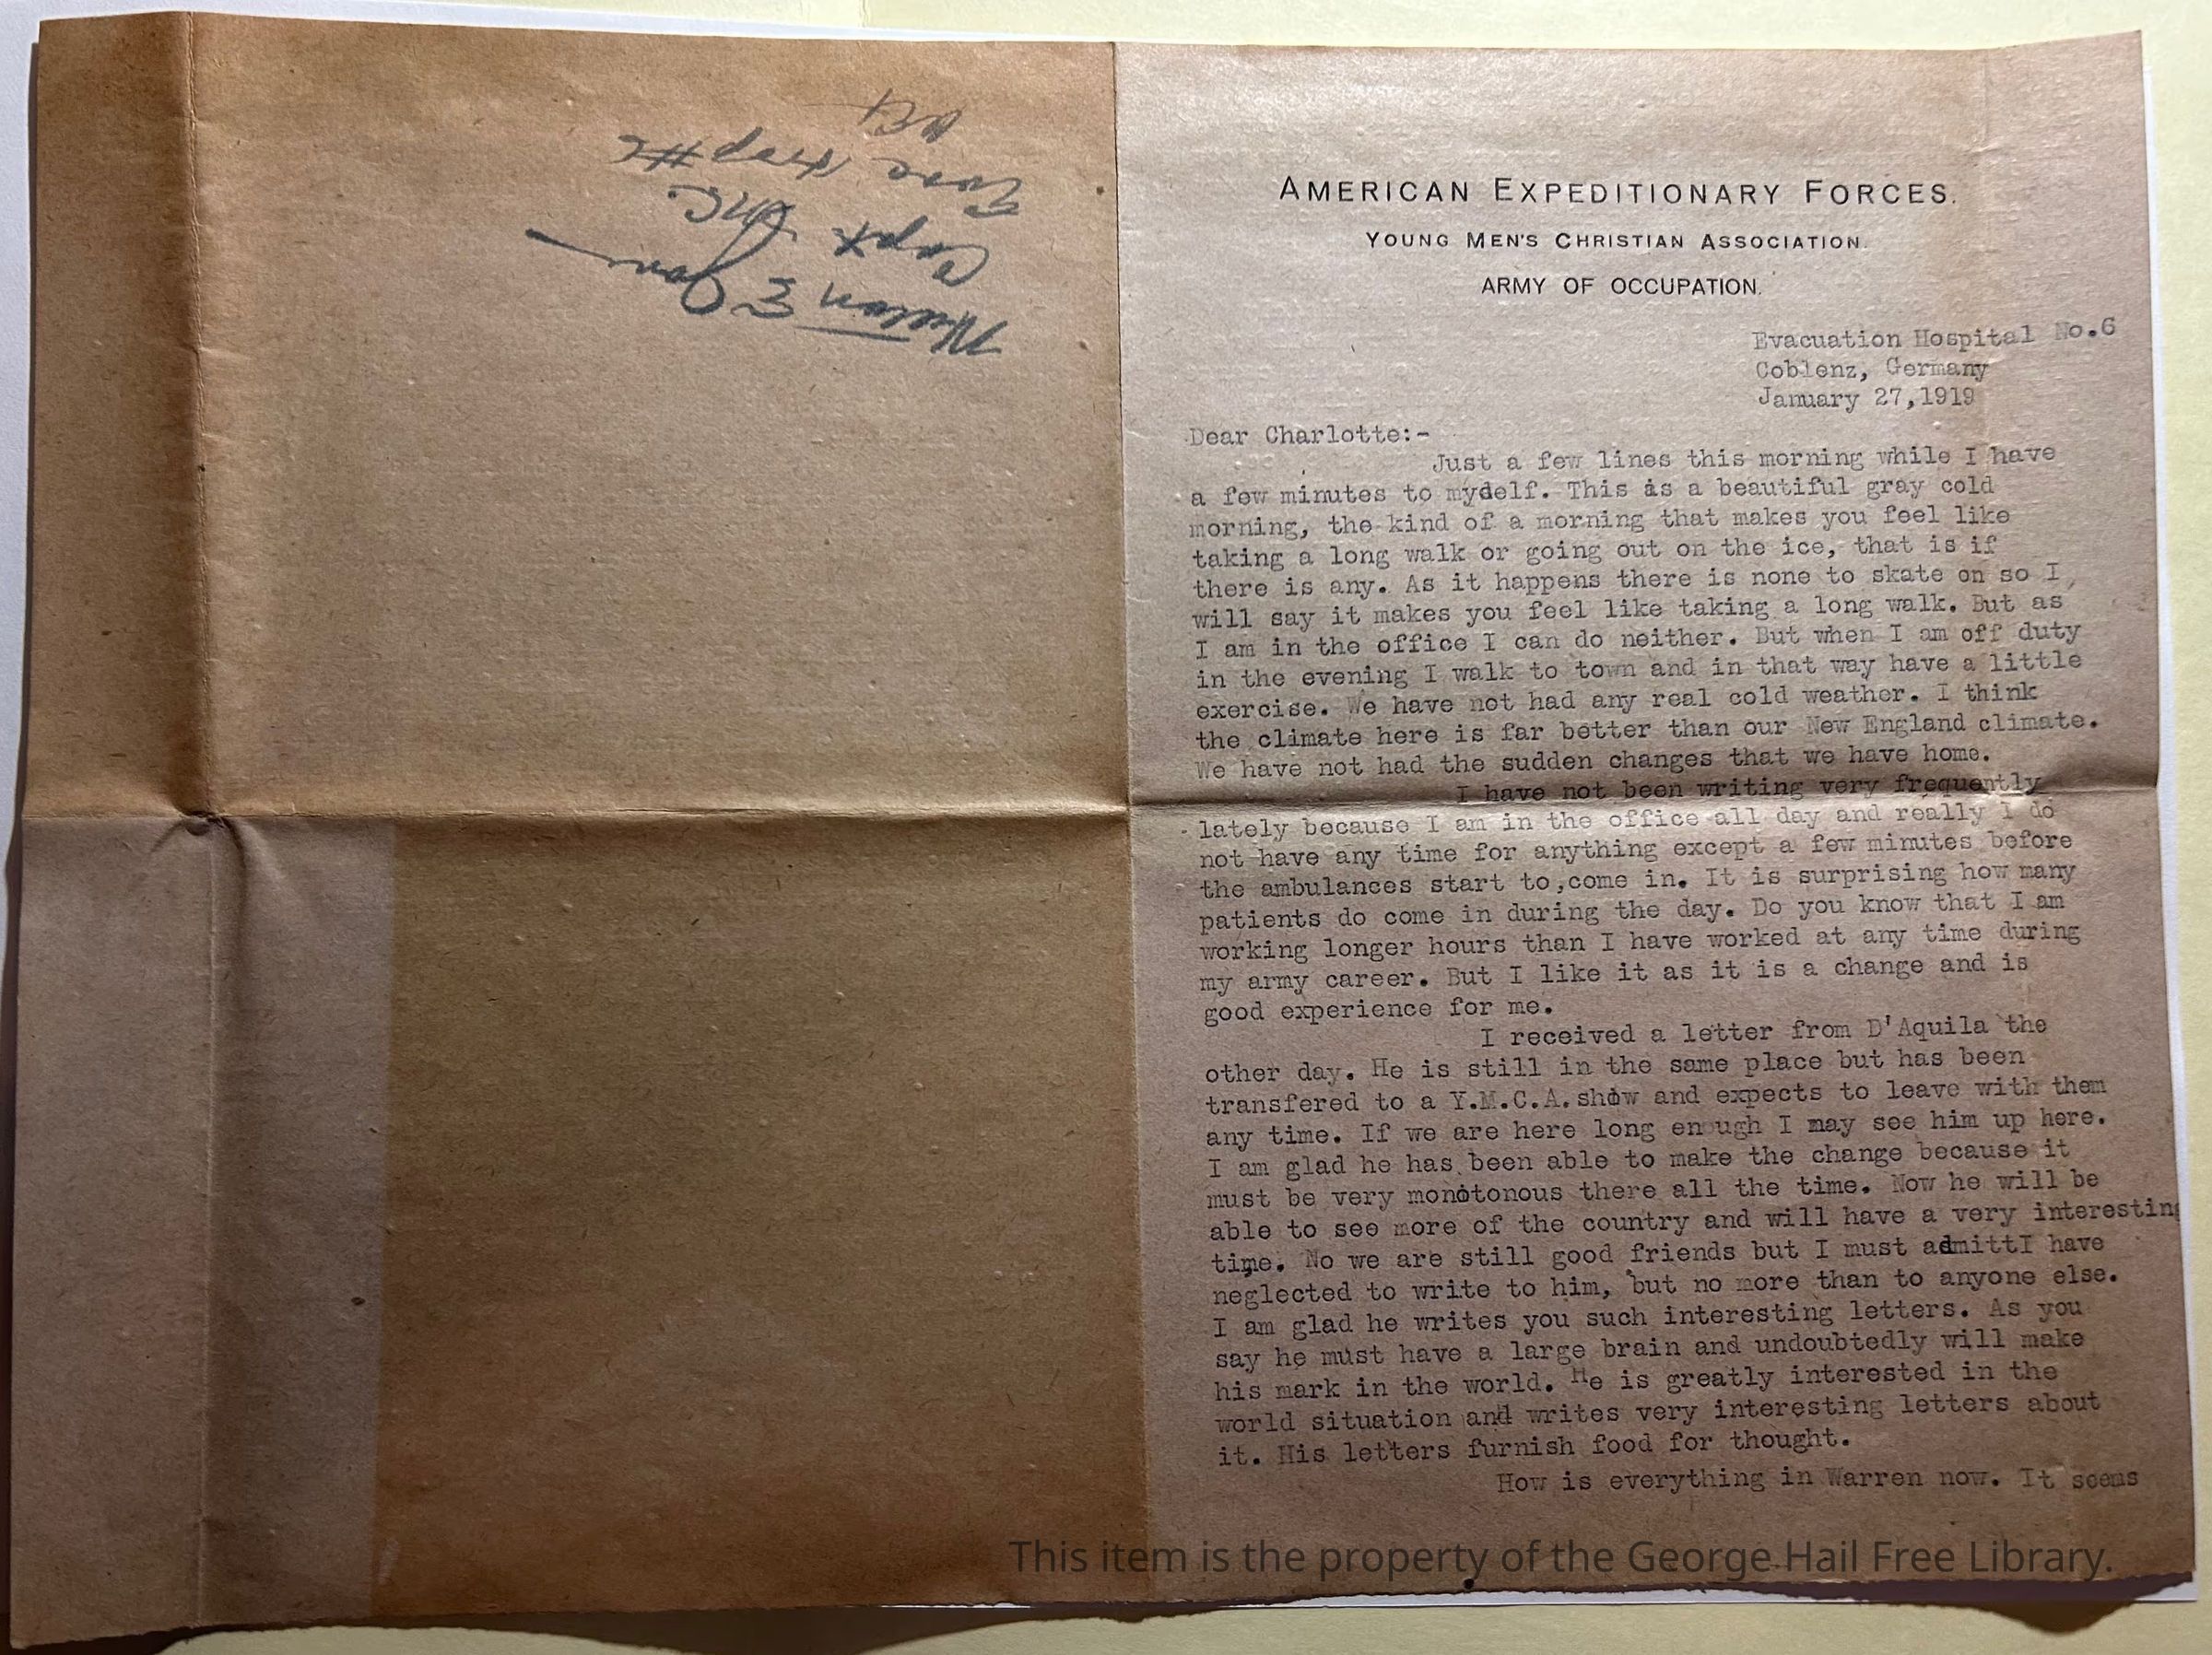 Milton E Jones
Capt. M.C.
Evac Hosp #6
AMERICAN EXPEDITIONARY FORCES.
YOUNG MEN'S CHRISTIAN ASSOCIATION.
ARMY OF OCCUPATION.
Evacuation Hospital No.6
Coblenz, Germany
January 27,1919
Dear Charlotte:-
Just a few lines this morning while I have
a few minutes to mydelf. This is a beautiful gray cold
morning, the kind of a morning that makes you feel like
taking a long walk or going out on the ice, that is if
there is any. As it happens there is none to skate on so I
will say it makes you feel like taking a long walk. But as
I am in the office I can do neither. But when I am off duty
in the evening I walk to town and in that way have a little
exercise. We have not had any real cold weather. I think
the climate here is far better than our New England climate.
We have not had the sudden changes that we have home.
I have not been writing very frequently
lately because I am in the office all day and really I do
not have any time for anything except a few minutes before
the ambulances start to,come in. It is surprising how many
patients do come in during the day. Do you know that I am
working longer hours than I have worked at any time during
my army career. But I like it as it is a change and is
good experience for me.
I received a letter from D'Aquila the
other day. He is still in the same place but has been
transfered to a Y.M.C.A.show and expects to leave with them
any time. If we are here long enough I may see him up here.
I am glad he has been able to make the change because it
must be very monotonous there all the time. Now he will be
able to see more of the country and will have a very interesting
time. No we are still good friends but I must admittI have
neglected to write to him, but no more than to anyone else.
I am glad he writes you such interesting letters. As you
say he must have a large brain and undoubtedly will make
his mark in the world. He is greatly interested in the
world situation and writes very interesting letters about
it. His letters furnish food for thought.
How is everything in Warren now. It seems
This item is the property of the George Hail Free Library.